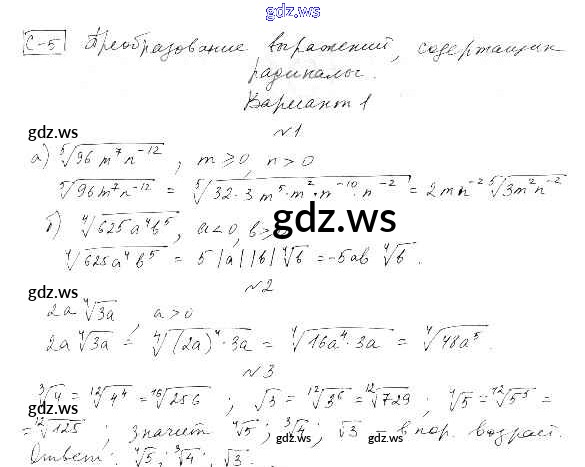 gdz.ws
С-5 Преобразование выражений, содержащих
радикалы.
Вариант 1
№1
gdz.ws
а) ⁵√(96 m⁷ n⁻¹²), m ≥ 0, n > 0
⁵√(96 m⁷ n⁻¹²) = ⁵√(32·3 m⁵·m²·n⁻¹⁰·n⁻²) = 2mn⁻² ⁵√(3m²n⁻²)
б) ⁴√(625a⁴b⁵), a < 0, b >
gdz.ws
⁴√(625a⁴b⁵) = 5|a||b| ⁴√b = -5ab ⁴√b.
№2
gdz.ws
2a ⁴√(3a), a > 0
2a ⁴√(3a) = ⁴√((2a)⁴·3a) = ⁴√(16a⁴·3a) = ⁴√(48a⁵).
№3
³√4 = ¹²√(4⁴) = ¹²√256; √3 = ¹²√(3⁶) = ¹²√729; ⁴√5 = ¹²√(5³) =
gdz.ws
= ¹²√125; значит ⁴√5; ³√4; √3 – в пор. возраст.
gdz.ws
Ответ: ⁴√5; ³√4; √3.
gdz.ws